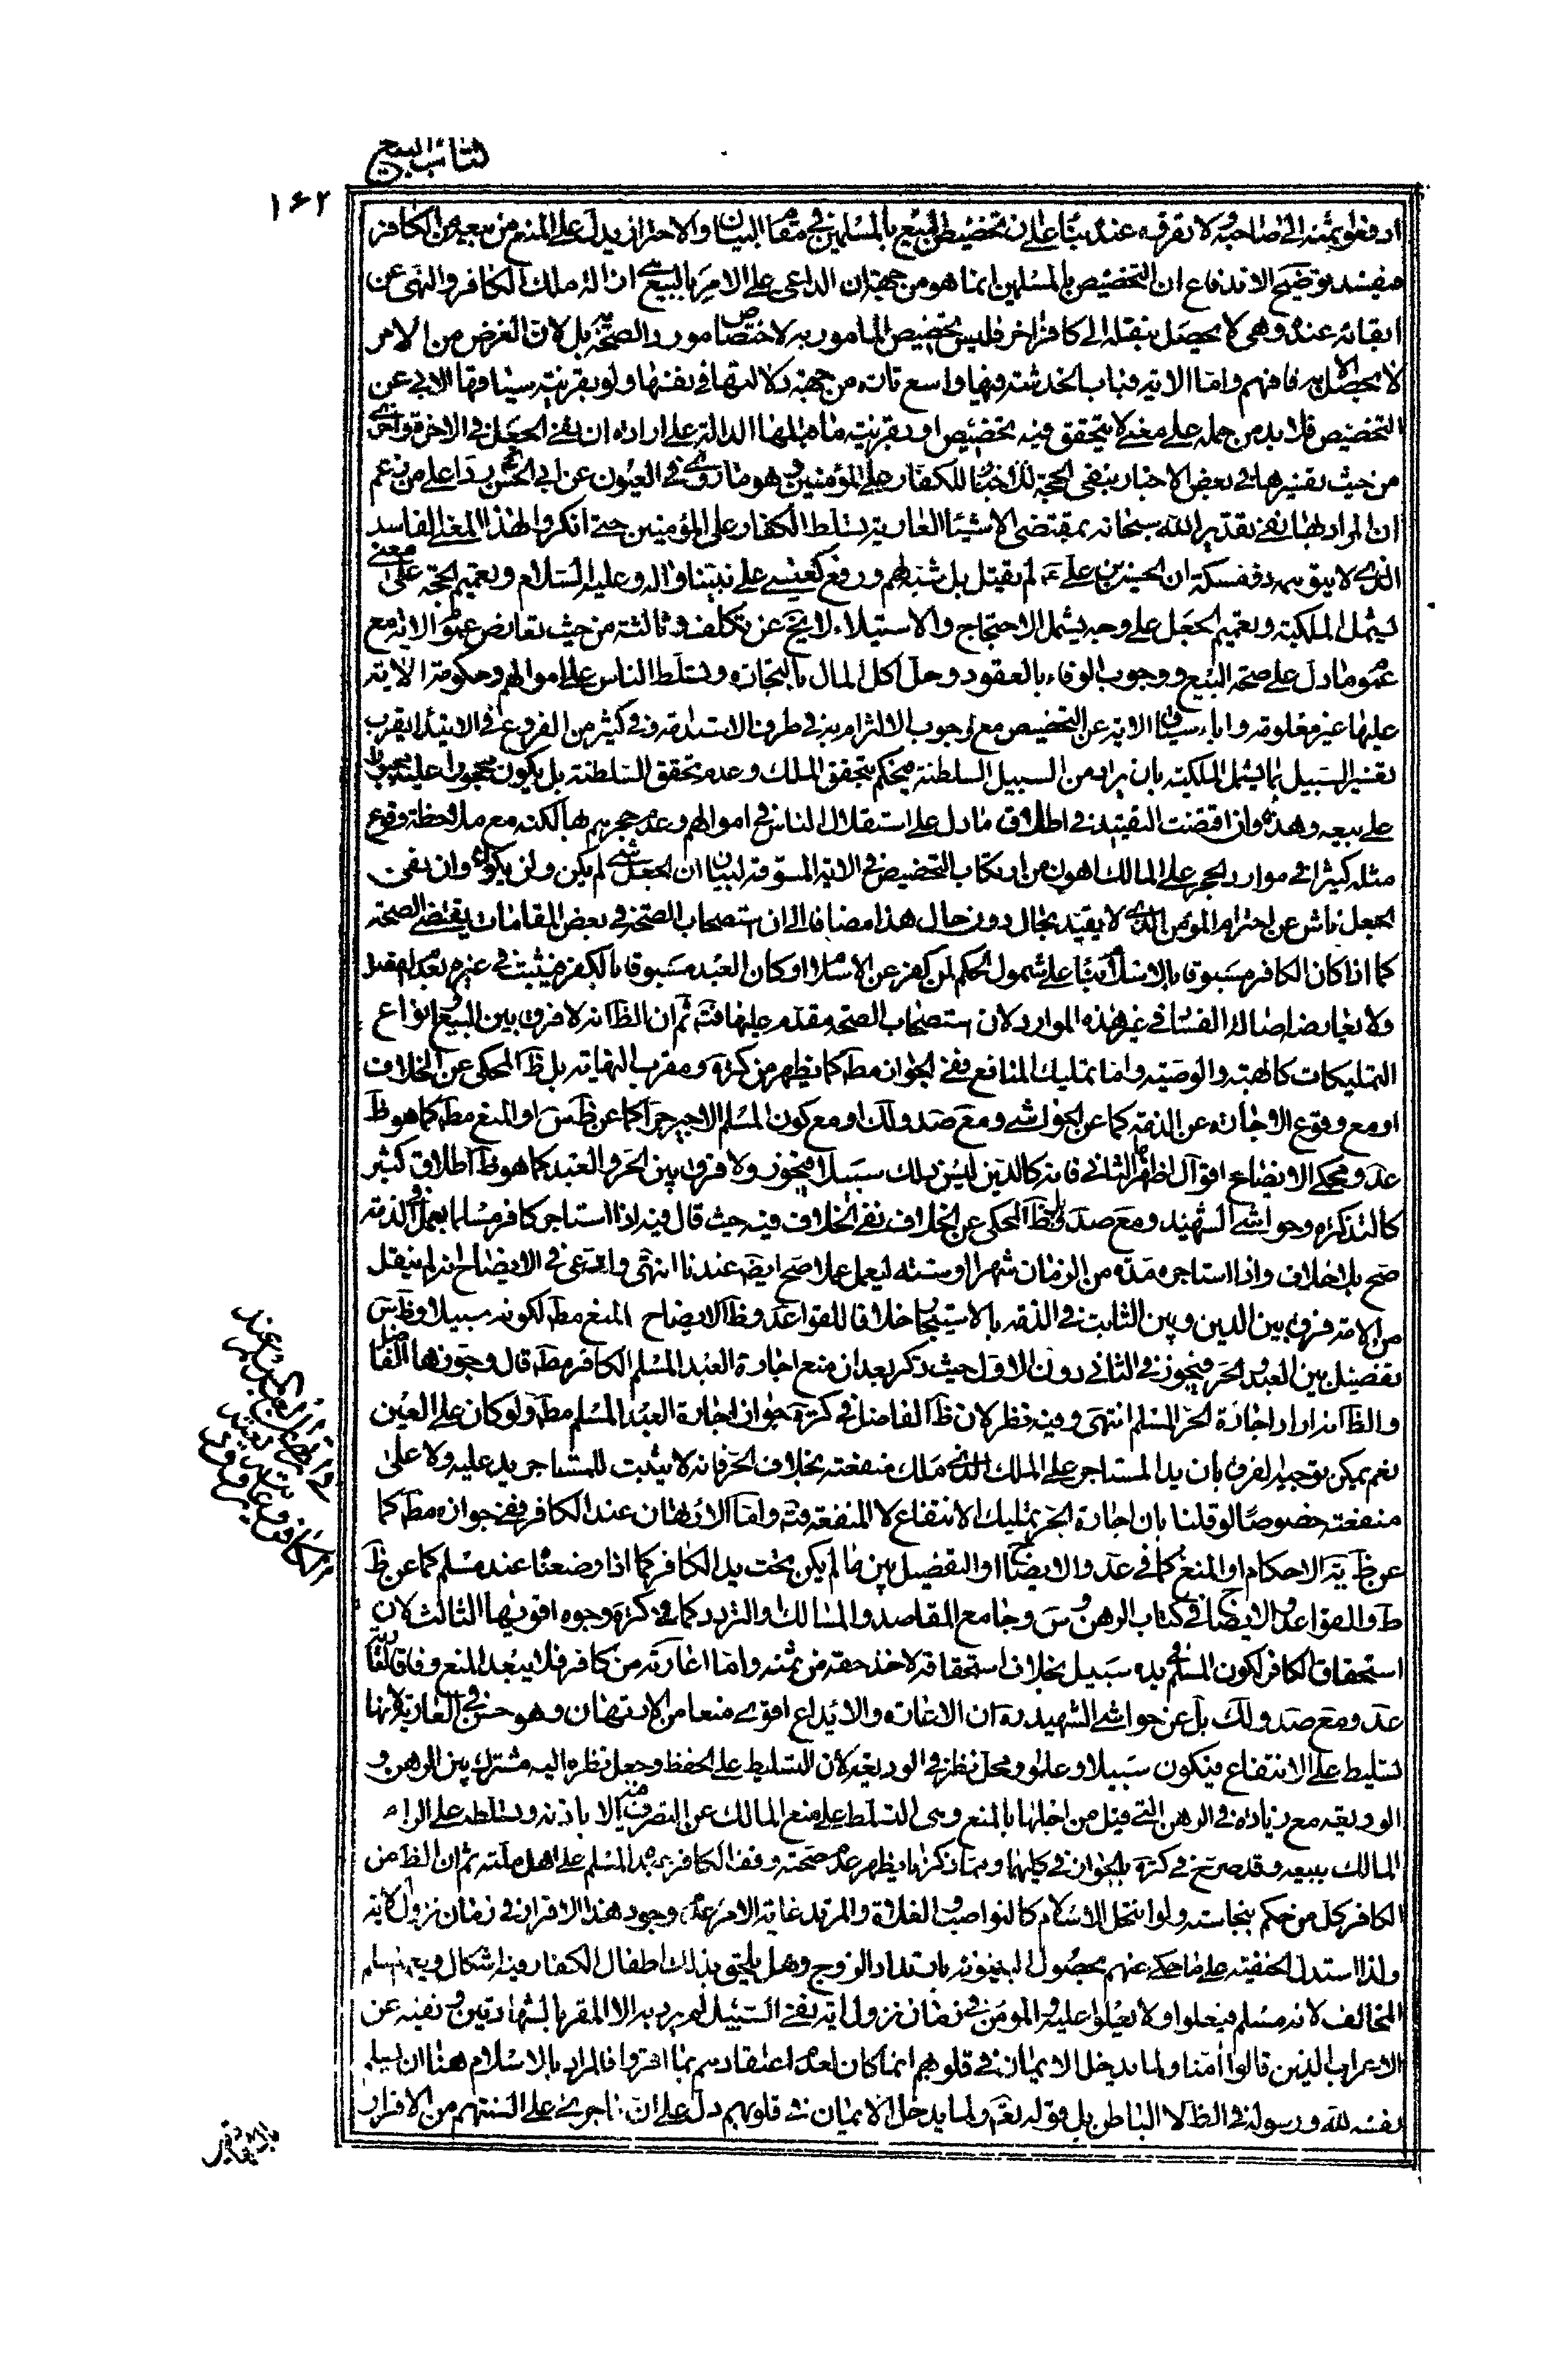 كتاب البيع
١٦٢
ادفعوا ثمنه الى صاحبه ولا تقروه عنده بناء على ان تخصيص البيع بالمسلمين في مقام البيان والاحتراز يدل على المنع من بيعه من الكافر
فيفسد توضيح الاندفاع ان التخصيص بالمسلمين انما هو من جهة ان الداعي على الامر بالبيع هي ازالة ملك الكافر والنهي عن
ابقائه عنده وهي لا يحصل بنقله الى كافر اخر فليس تخصيص المامور به لاختصاص مورد الصحة به بل لان الغرض من الامر
لا يحصل الا به فافهم واما الاية فباب الخدشة فيها واسع تارة من جهة دلالتها في نفسها ولو بقرينة سياقها الابي عن
التخصيص فلا بد من حمله على معنى لا يتحقق فيه تخصيص او بقرينة ما قبلها الدالة على ارادة ان نفي الجعل في الاخرة واخرى
من حيث تفسيرها في بعض الاخبار بنفي الحجة للكفار على المؤمنين وهو ما روى في العيون عن ابي الحسن ردا على من زعم
ان المراد بها نفي تقدير الله سبحانه بمقتضى الاسباب العادية تسلط الكفار على المؤمنين حتى انكروا لهذا المعنى الفاسد
الذي لا يتوهمه ذو مسكة ان الحسين بن علي ع لم يقتل بل شبه لهم ورفع كعيسى على نبينا واله وعليه السلام وتعميم الحجة على معنى
يشمل الملكية وتعميم الجعل على وجه يشمل الاحتجاج والاستيلاء لا يخ عن تكلف وثالثة من حيث تعارض عموم الاية مع
عموم ما دل على صحة البيع ووجوب الوفاء بالعقود وحل اكل المال بالتجارة وتسلط الناس على اموالهم وحكومة الاية
عليها غير معلومة واباء سياق الاية عن التخصيص مع وجوب الالتزام به في طرف الاستدامة وفي كثير من الفروع في الابتداء يقرب
تفسير السبيل بما يشمل الملكية بان يراد من السبيل السلطنة فيحكم بتحقق الملك وعدم تحقق السلطنة بل يكون محجورا عليه مجبورا
على بيعه وهذا وان اقتضت التقييد في اطلاق ما دل على استقلال الناس في اموالهم وعدم حجرهم بها لكنه مع ملاحظة وقوع
مثله كثيرا في موارد الحجر على المالك اهون من ارتكاب التخصيص في الاية المسوقة لبيان ان الجعل شيء لم يكن ولن يكون وان نفي
الجعل ناش عن احترام المؤمن الذي لا يقيد بحال دون حال هذا مضافا الى ان استصحاب الصحة في بعض المقامات يقتضي الصحة
كما اذا كان الكافر مسبوقا بالاسلام بناء على شمول الحكم لمن كفر عن الاسلام او كان العبد مسبوقا بالكفر فيثبت في غيره بعدم الفصل
ولا يعارضه اصالة الفساد في غير هذه الموارد لان استصحاب الصحة مقدم عليها فتم ثم ان الظ انه لا فرق بين البيع وانواع
التمليكات كالهبة والوصية واما تمليك المنافع ففي الجواز مط كما يظهر من كرة ومقرب النهاية بل ظ المحكي عن الخلاف
او مع وقوع الاجارة عن الذمة كما عن الحواشي ومع صد ولك او مع كون المسلم الاجير حرا كما عن ظ س او المنع مط كما هو ظ
عد ومحكي الايضاح اقوال اظهرها الثاني فانه كالدين ليس ذلك سبيلا فيجوز ولا فرق بين الحر والعبد كما هو ظ اطلاق كثير
كالتذكرة وحواشي الشهيد ومع صد بل ظ المحكي عن الخلاف نفي الخلاف فيه حيث قال فيه اذا استاجر كافر مسلما بعمل في الذمة
صح بلا خلاف واذا استاجره مدة من الزمان شهرا او سنة ليعمل عملا صح ايضا عندنا انتهى وادعى في الايضاح انه لم ينقل
من الامة فرق بين الدين وبين الثابت في الذمة بالاستيجار خلافا للقواعد وظ الايضاح المنع مط لكونه سبيلا وظ س
تفصيل بين العبد والحر فيجوز في الثاني دون الاول حيث ذكر بعد ان منع اجارة العبد المسلم الكافر مط قال وجوزها الفاضل
والظ انه اراد اجارة الحر المسلم انتهى وفيه نظر لان ظ الفاضل في كرة جواز اجارة العبد المسلم مط ولو كان على العين
نعم يمكن توجيه الفرق بان يد المستاجر على الملك الذي ملك منفعته بخلاف الحر فانه لا يثبت للمستاجر يد عليه ولا على
منفعته خصوصا لو قلنا بان اجارة الحر تمليك الانتفاع لا المنفعة فتم واما الارتهان عند الكافر ففي جوازه مط كما
عن ظ ية الاحكام او المنع كما في عد والايضاح او التفصيل بين ما لم يكن تحت يد الكافر كما اذا وضعناه عند مسلم كما عن ظ
ط والقواعد والايضاح في كتاب الرهن وس وجامع المقاصد والمسالك والتردد كما في كرة وجوه اقويها الثالث لان
استحقاق الكافر لكون المسلم في يده سبيل بخلاف استحقاقه لاخذ حقه من ثمنه واما اعارته من كافر فلا يبعد المنع وفاقا لعارية
عد ومع صد ولك بل عن حواشي الشهيد ره ان الاعارة والايداع اقوى منعا من الارتهان وهو حسن في العارية لانها
تسليط على الانتفاع فيكون سبيلا وعلوا ومحل نظر في الوديعة لان التسليط على الحفظ وجعل نظره اليه مشترك بين الرهن و
الوديعة مع زيادة في الرهن التي قيل من اجلها بالمنع وهي التسلط على منع المالك عن التصرف فيه الا باذنه وتسلطه على الزام
المالك ببيعه وقد صرح في كرة بالجواز في كليهما ومما ذكرنا يظهر عدم صحة وقف الكافر عبده المسلم على اهل ملته ثم ان الظ من
الكافر كل من حكم بنجاسته ولو انتحل الاسلام كالنواصب والغلاة والمرتد غاية الامر عدم وجود هذه الافراد في زمان نزول الاية
ولذا استدل الحنفية على ما حكي عنهم بحصول البينونة بارتداد الزوج وهل يلحق بذلك اطفال الكفار فيه اشكال ويعم المسلم
المخالف لانه مسلم فيعلو ولا يعلى عليه والمؤمن في زمان نزول اية نفي السبيل لم يرد به الا المقر بالشهادتين ونفيه عن
الاعراب الذين قالوا امنا ولما يدخل الايمان في قلوبهم انما كان لعدم اعتقادهم بما اقروا فالمراد بالاسلام هنا ان يسلم
نفسه لله ورسوله في الظ لا الباطن بل قوله تعم ولما يدخل الايمان في قلوبهم دل على ان ما جرى على السنتهم من الاقرار